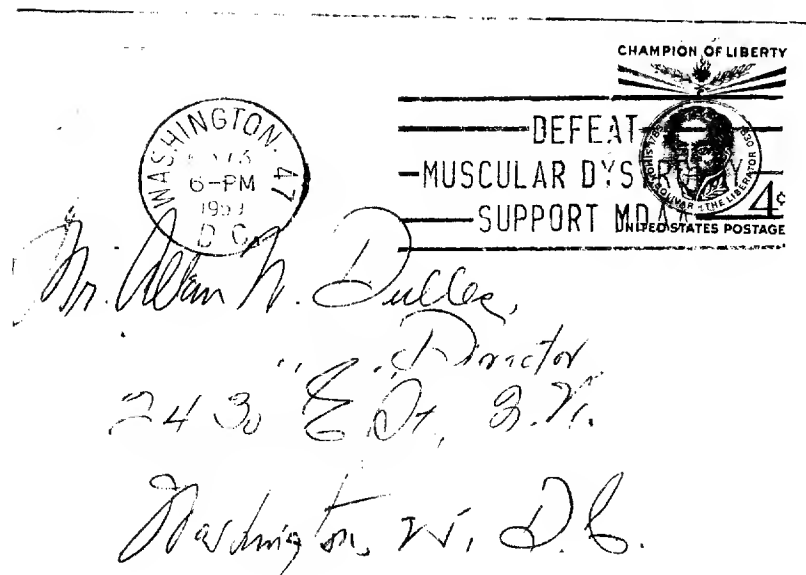 CHAMPION OF LIBERTY
WASHINGTON 47
6-PM
1959
D.C.
DEFEAT
MUSCULAR DYSTROPHY
SUPPORT MDAA
SIMON BOLIVAR THE LIBERATOR
1783 1830
4¢
UNITED STATES POSTAGE
Mr. Allen W. Dulles,
Director
2430 "E" St., N.W.
Washington, D.C.